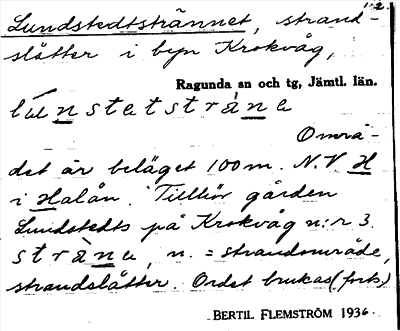 1-2.
Lundstedtstrännet, strand-
slåtter i byn Krokvåg,
Ragunda sn och tg, Jämtl. län.
Områ-
det är beläget 100 m. N.V. H
i Halån. Tillhör gården
Lundstedts på Krokvåg n:r 3.
strànɑ, n. = strandområde,
strandslåtter. Ordet brukas (forts)
BERTIL FLEMSTRÖM 1936.